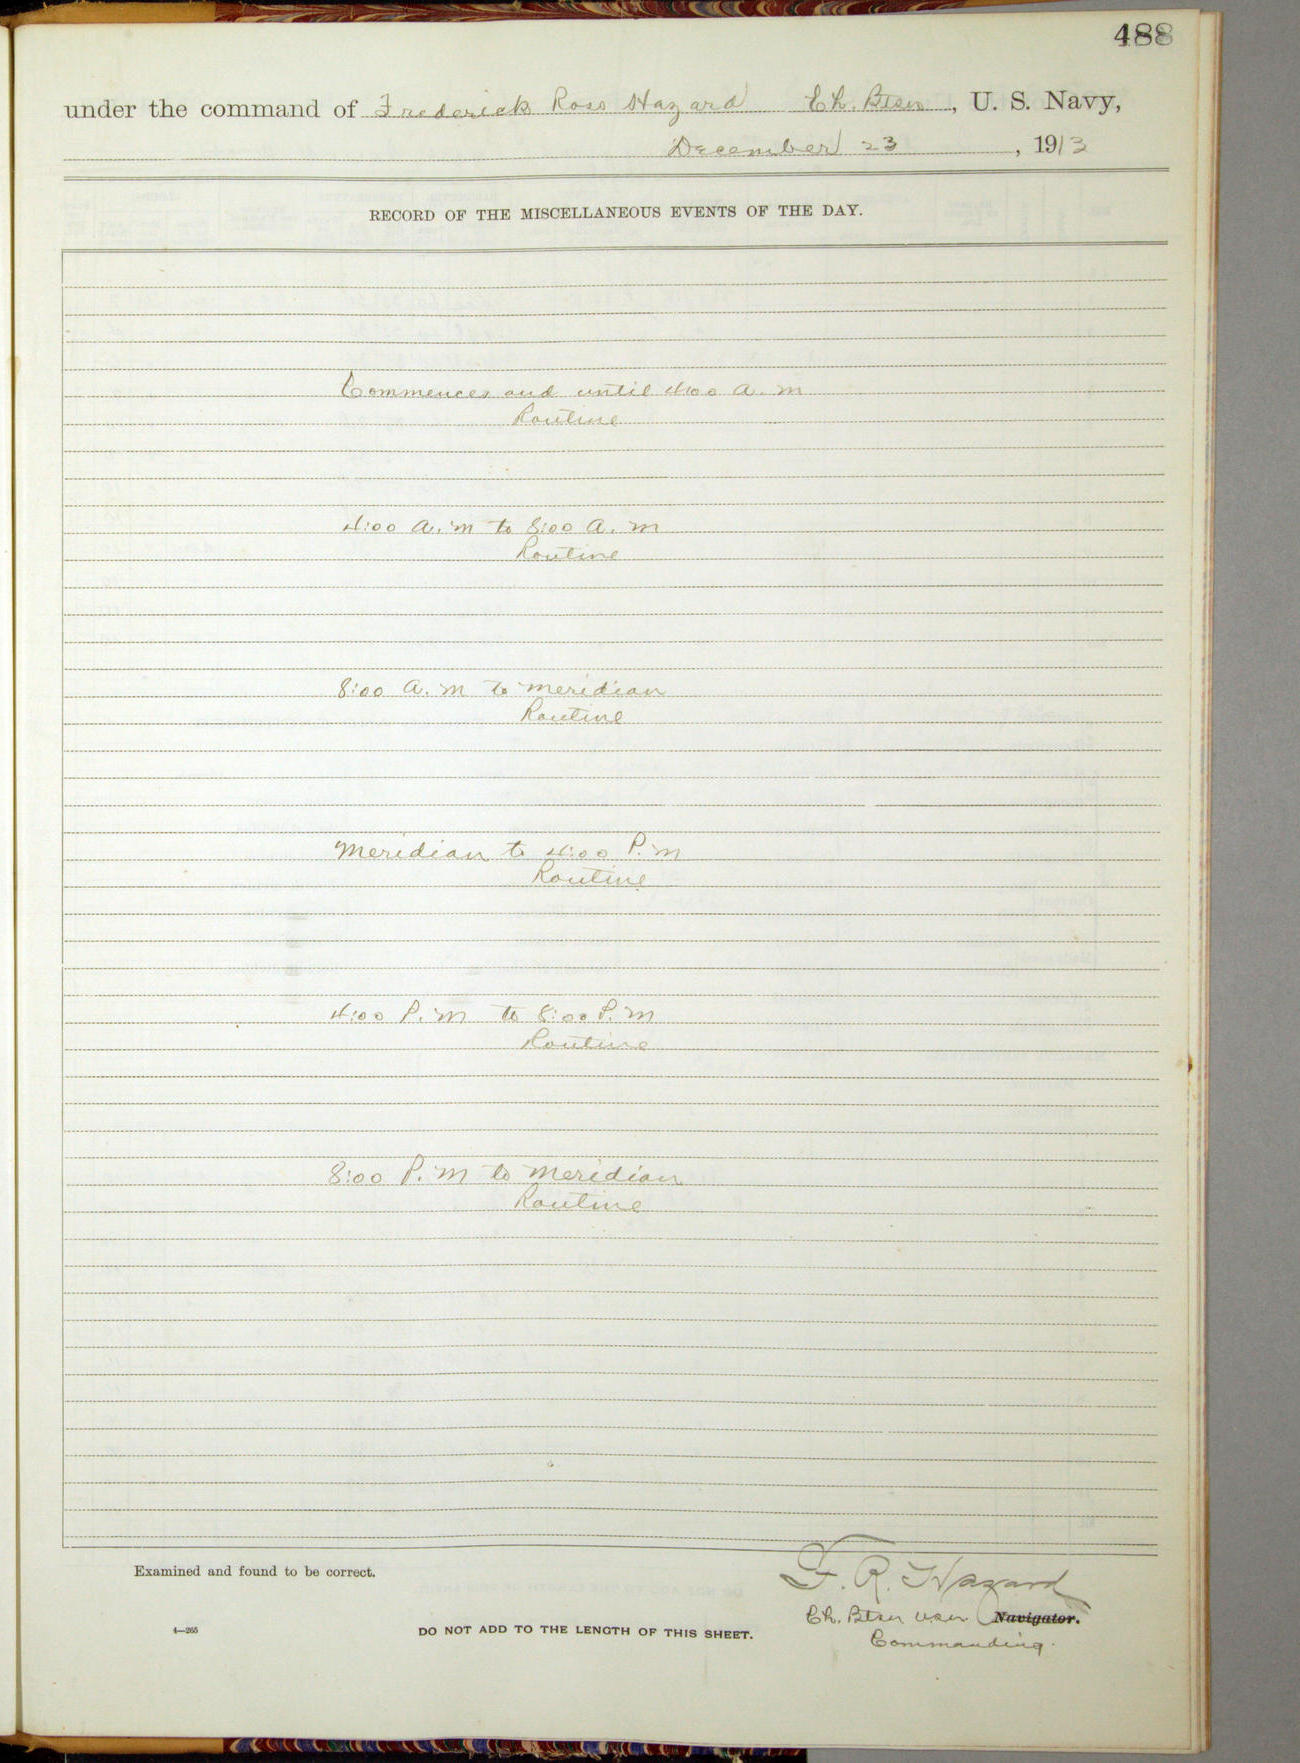 488
under the command of Frederick Ross Hazard Ch. Btsn, U. S. Navy,
December 23, 1913
RECORD OF THE MISCELLANEOUS EVENTS OF THE DAY.
Commences and until 4:00 a.m
Routine
4:00 a.m to 8:00 a.m
Routine
8:00 a.m to meridian
Routine
Meridian to 4:00 P.m
Routine
4:00 P.m to 8:00 P.m
Routine
8:00 P.m to meridian
Routine
Examined and found to be correct.
F. R. Hazard
Ch. Btsn USN Navigator.
Commanding.
4—265
DO NOT ADD TO THE LENGTH OF THIS SHEET.